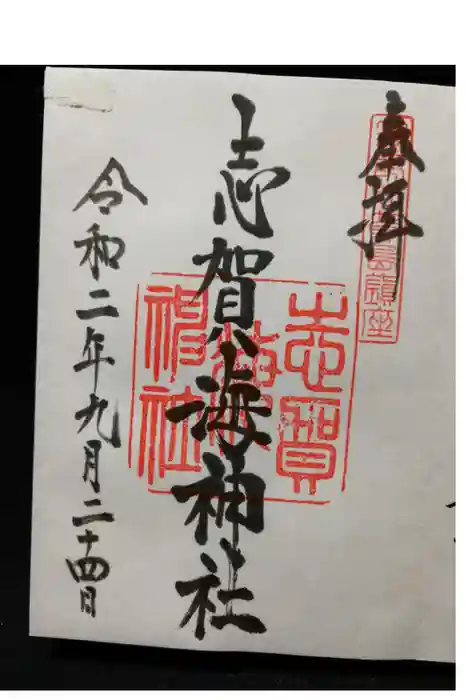 奉拝
志賀海神社
令和二年九月二十四日
島鎮座
志賀
海
神社